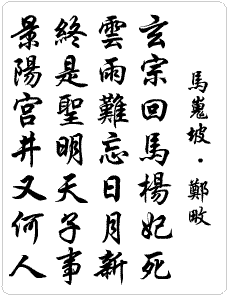 馬嵬坡·鄭畋
玄宗回馬楊妃死
雲雨難忘日月新
終是聖明天子事
景陽宮井又何人